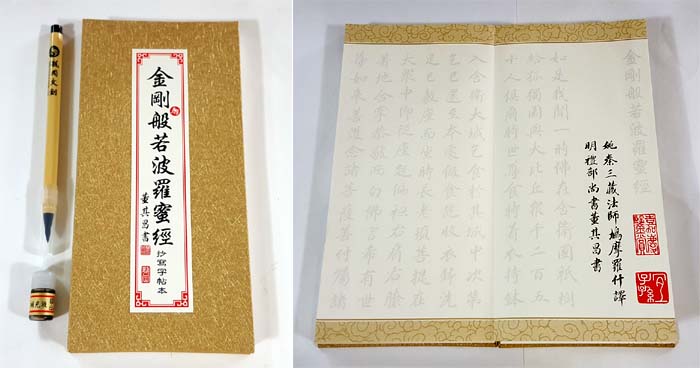 文創
金剛般若波羅蜜經
董其昌書
抄寫字帖本
金剛般若波羅蜜經
姚秦三藏法師鳩摩羅什譯
明禮部尚書董其昌書
宜子孫
如是我聞一時佛在舍衛國祇樹
給孤獨園與大比丘衆千二百五
十人俱爾時世尊食時著衣持鉢
入舍衛大城乞食於其城中次第
乞已還至本處飯食訖收衣鉢洗
足已敷座而坐時長老須菩提在
大衆中即從座起偏袒右肩右膝
著地合掌恭敬而白佛言希有世
尊如來善護念諸菩薩善付囑諸